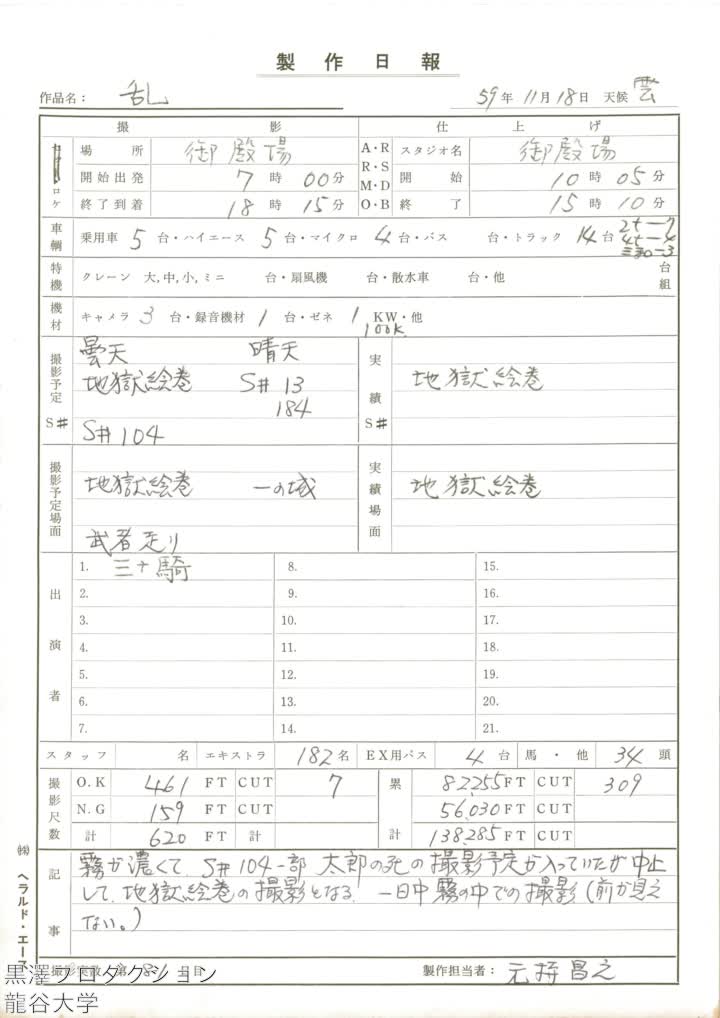 製作日報
作品名： 乱 59年 11月 18日 天候 雲
撮影 仕上げ
ロケ 場所 御殿場 A・R スタジオ名 御殿場
開始出発 7時 00分 R・S M・D 開始 10時 05分
終了到着 18時 15分 O・B 終了 15時 10分
車輌 乗用車 5台・ハイエース 5台・マイクロ 4台・バス 台・トラック 14台 2t-7 4t-4
特機 クレーン 大,中,小,ミニ 台・扇風機 台・散水車 台・他 台組
機材 キャメラ 3台・録音機材 1台・ゼネ 1 KW・他
100K
撮影予定 S# 曇天 晴天 実績 S#
地獄絵巻 S# 13 地獄絵巻
184
S# 104
撮影予定場面 地獄絵巻 一の城 実績場面 地獄絵巻
武者走り
出演者 1. 三十騎 8. 15.
2. 9. 16.
3. 10. 17.
4. 11. 18.
5. 12. 19.
6. 13. 20.
7. 14. 21.
スタッフ 名 エキストラ 182名 EX用バス 4台 馬・他 34頭
撮影尺数 O.K 461 FT CUT 7 累計 82,255FT CUT 309
N.G 159 FT CUT 56,030FT CUT
計 620 FT 計 138,285FT CUT
記事 霧が濃くて、S#104一部 太郎の死の撮影予定が入っていたが中止
して、地獄絵巻の撮影となる。一日中霧の中での撮影(前が見え
ない。)
撮影実数 第 81 日目 製作担当者： 元持昌之
㈱ ヘラルド・エース
黒澤プロダクション
龍谷大学